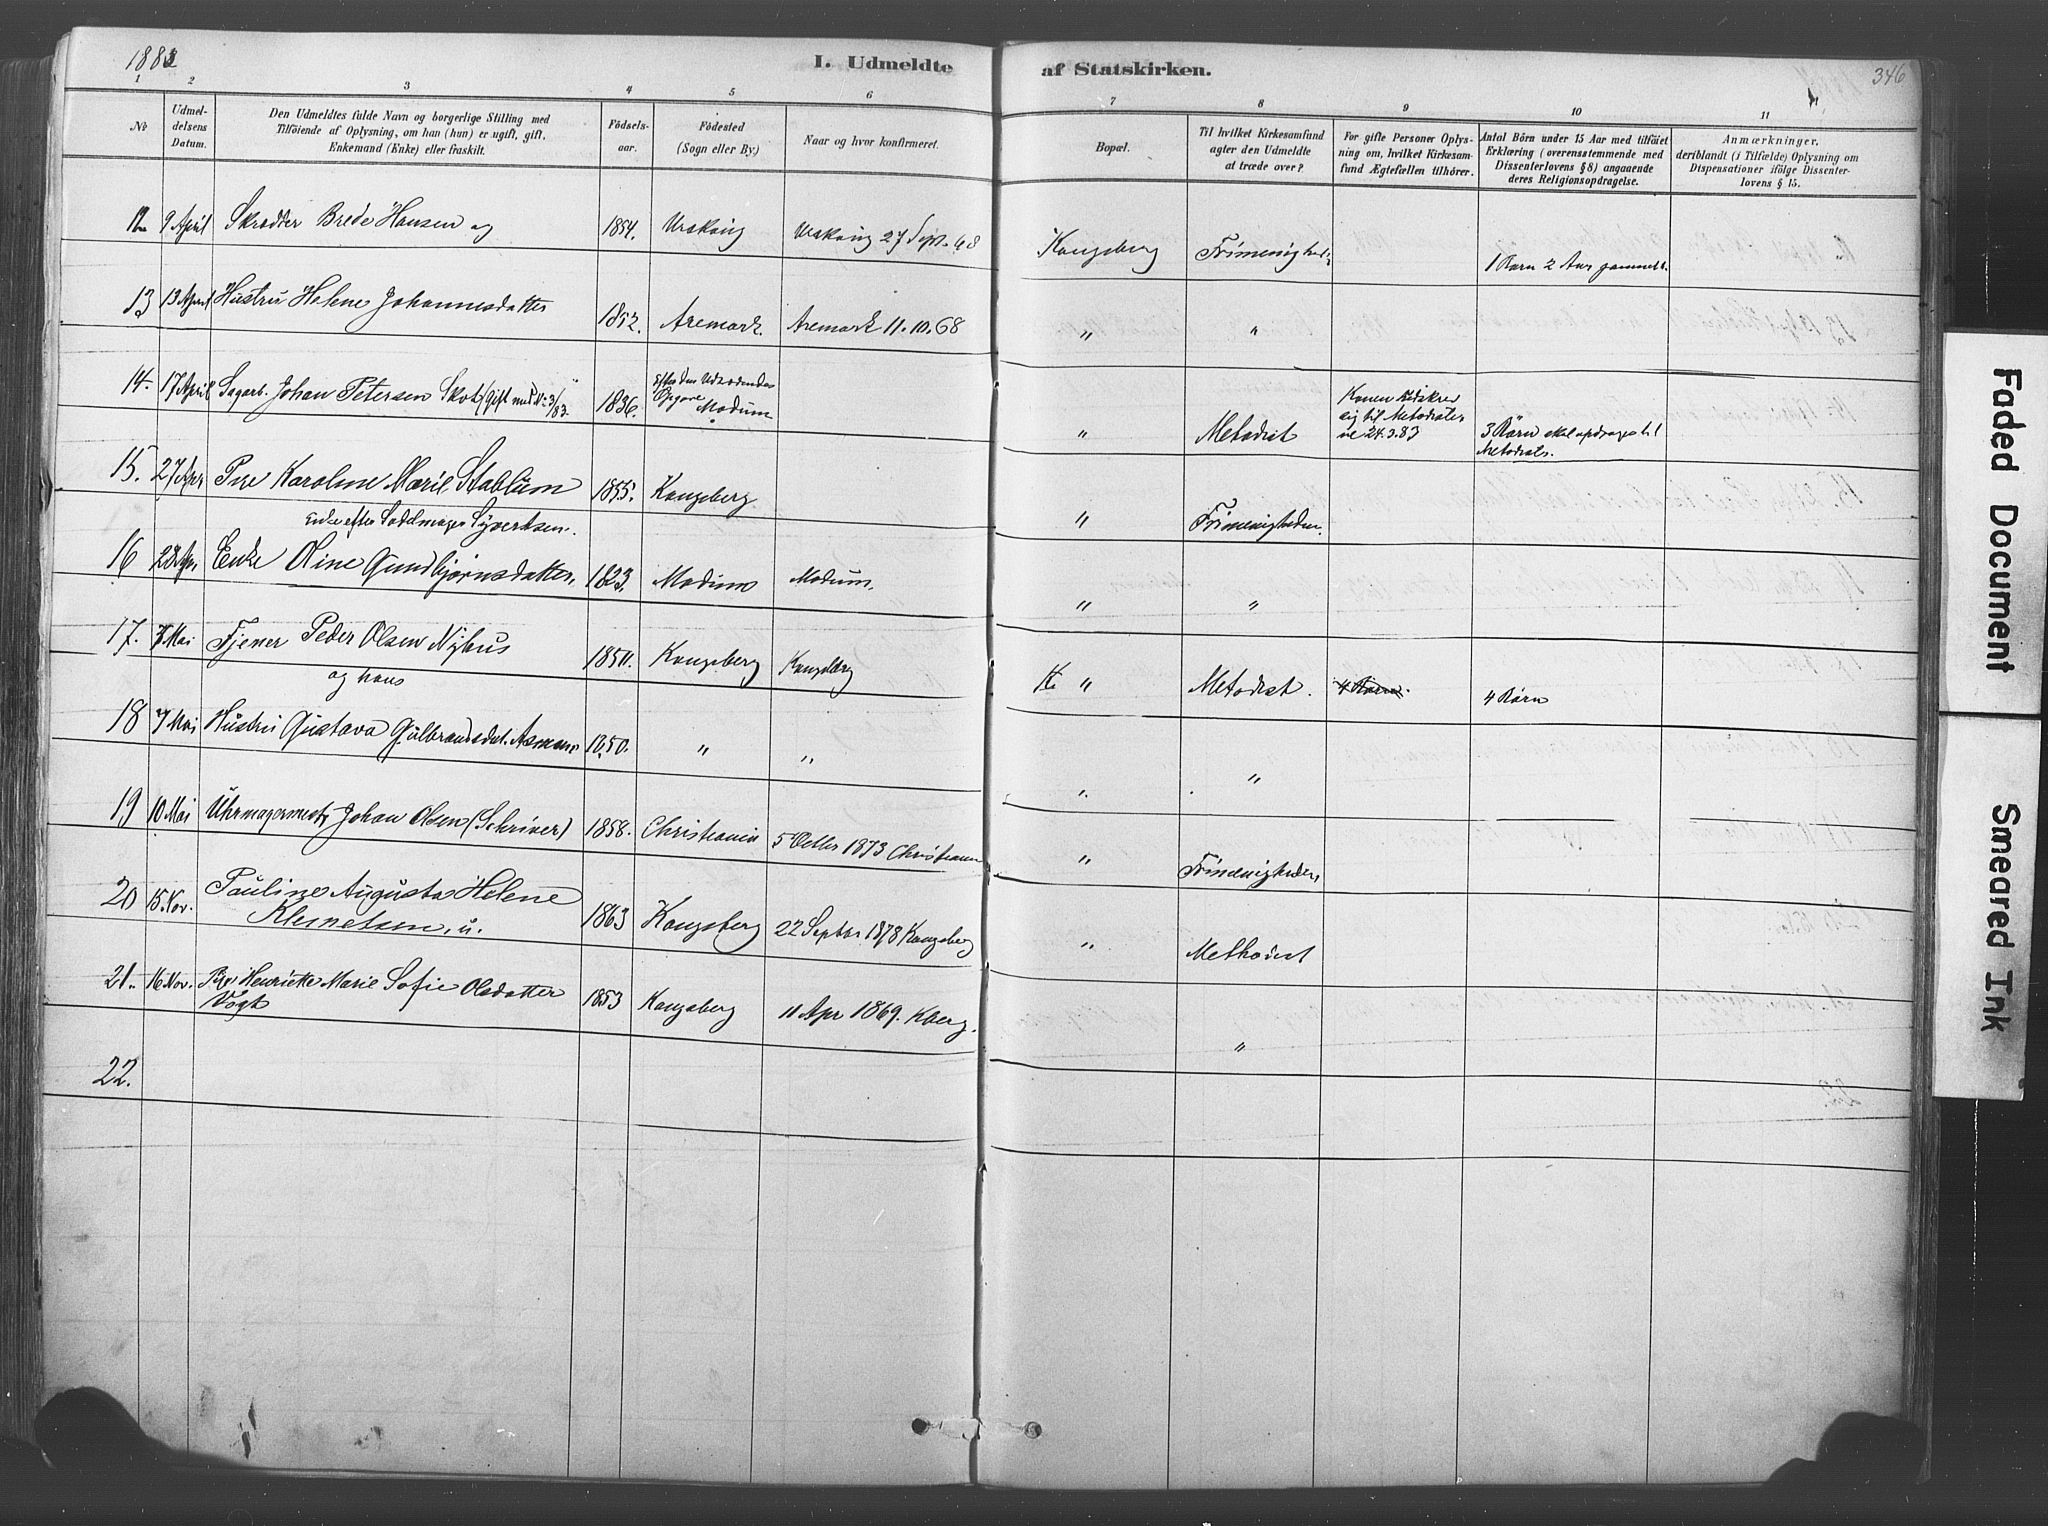 1883
I. Udmeldte af Statskirken.
346
1 2 3 4 5 6 7 8 9 10 11
No
Udmel-
delsens
Datum.
Den Udmeldtes fulde Navn og borgerlige Stilling med
Tilföiende af Oplysning, om han (hun) er ugift, gift,
Enkemand (Enke) eller fraskilt.
Födsels-
aar.
Födested
(Sogn eller By.)
Naar og hvor konfirmeret.
Bopæl.
Til hvilket Kirkesamfund
agter den Udmeldte
at træde over?
For gifte Personer Oplys-
ning om, hvilket Kirkesam-
fund Ægtefællen tilhörer.
Antal Börn under 15 Aar med tilföiet
Erklæring (overensstemmende med
Dissenterlovens § 8) angaaende
deres Religionsopdragelse.
Anmærkninger,
deriblandt (i Tilfælde) Oplysning om
Dispensationer ifölge Dissenter-
lovens § 15.
12 9 April Skrædder Brede Hansen og 1854. Urskoug Urskoug 27 Sept. 68 Kongsberg Frimenighed. 1 Barn 2 Aar gammelt.
13 13 April Hustru Helene Johannesdatter 1852. Aremark. Aremark 11.10.68 " "
14. 17 April Sagarb. Johan Petersen Skot (Gift med No 3/83. 1836. Efter den Udtrædendes
Opgave Modum " Metodist Konen udskrev
sig til Metodister-
ne 24.3.83 3 Börn skal opdrages til
Metodister.
15. 27 Apr Pige Karoline Marie Stablum 1855. Kongsberg " Frimenigheden.
Enke efter Sadelmager Syvertsen.
16 28 Apr Enke Oline Gundbjørnsdatter, 1823. Modum Modum. " "
17. 7 Mai Tjener Peder Olsen Nyhus 1850. Kongsberg Kongsberg K. " Metodist. 4 Börn. 4 Börn
og hans
18 7 Mai Hustru Gustava Gulbrandsdat. Asmann 1850. " " " "
19 10 Mai Uhrmagermest. Johan Olsen (Schriver) 1858. Christiania 5 Octbr 1873 Christiania " Frimenigheden
20 15 Nov. Pauline Augusta Helene
Klemetsen, u. 1863 Kongsberg 22 Septbr 1878 Kongsberg " Methodist
21. 16 Nov. Pige Henriette Marie Sofie Olsdatter
Vogt 1853 Kongsberg 11 Apr 1869. Kberg. "
22.
Faded Document
Smeared Ink